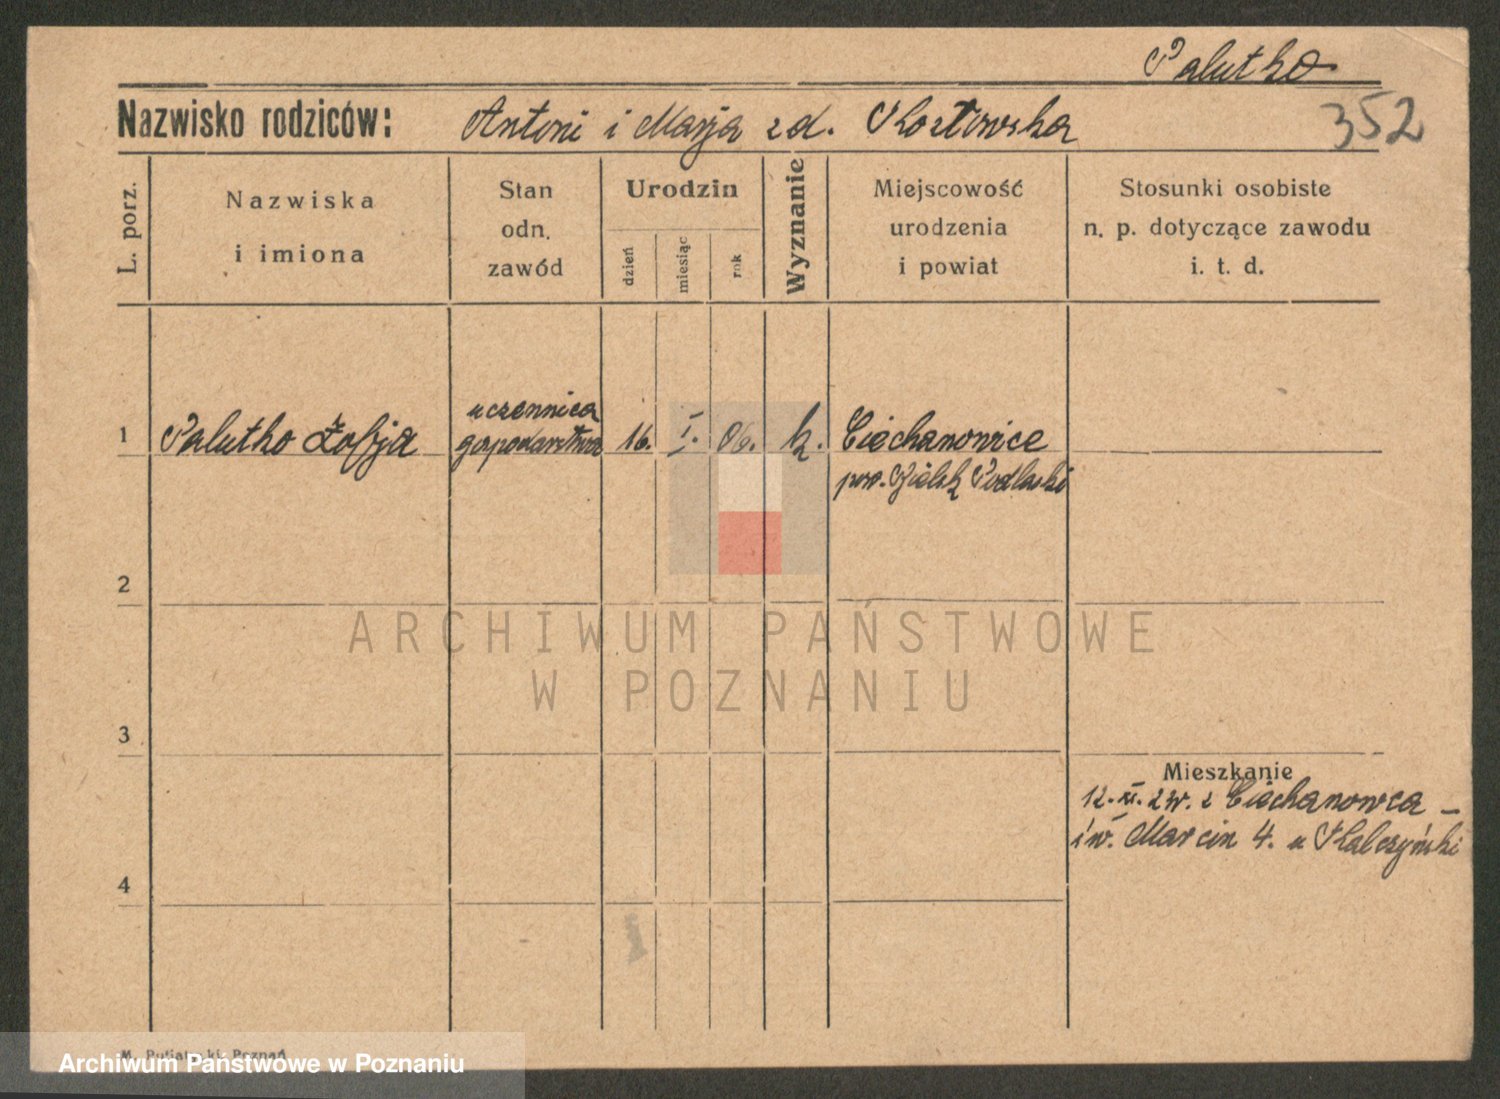 Palutko
Nazwisko rodziców: Antoni i Marja zd. Kozłowska 352
L. porz.
Nazwiska
i imiona
Stan
odn.
zawód
Urodzin
dzień
miesiąc
rok
Wyznanie
Miejscowość
urodzenia
i powiat
Stosunki osobiste
n. p. dotyczące zawodu
i. t. d.
uczennica
1 Palutko Zofja gospodarstwa 16. I. 06. k. Ciechanowice
pow. Bielsk Podlaski
2
ARCHIWUM PAŃSTWOWE
W POZNANIU
3
Mieszkanie
12. XI. zw. z Ciechanowca –
św. Marcin 4. u
4
Archiwum Państwowe w Poznaniu